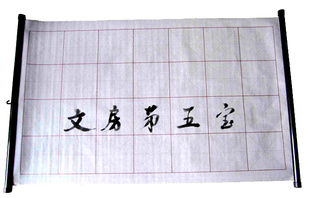 文房第五宝